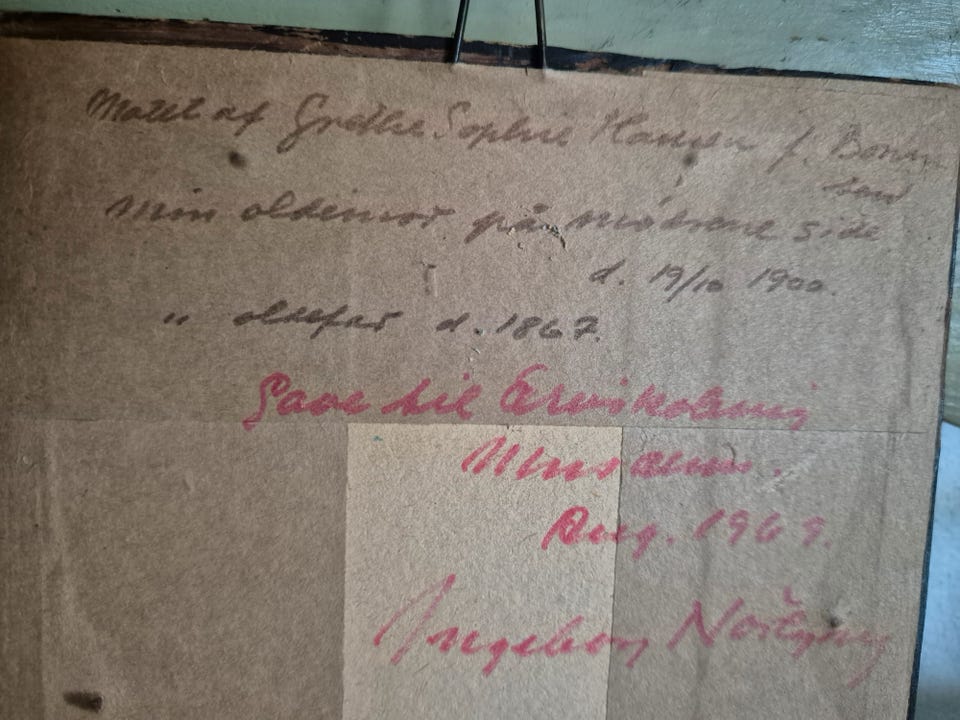 Malet af Grethe Sophie Hansen f. Bonne
sen
min oldemor på mødrene side
d. 19/10 1900.
" oldefar d. 1867.
Gave til Ærøskøbing
Museum.
Aug. 1969.
Ingeborg